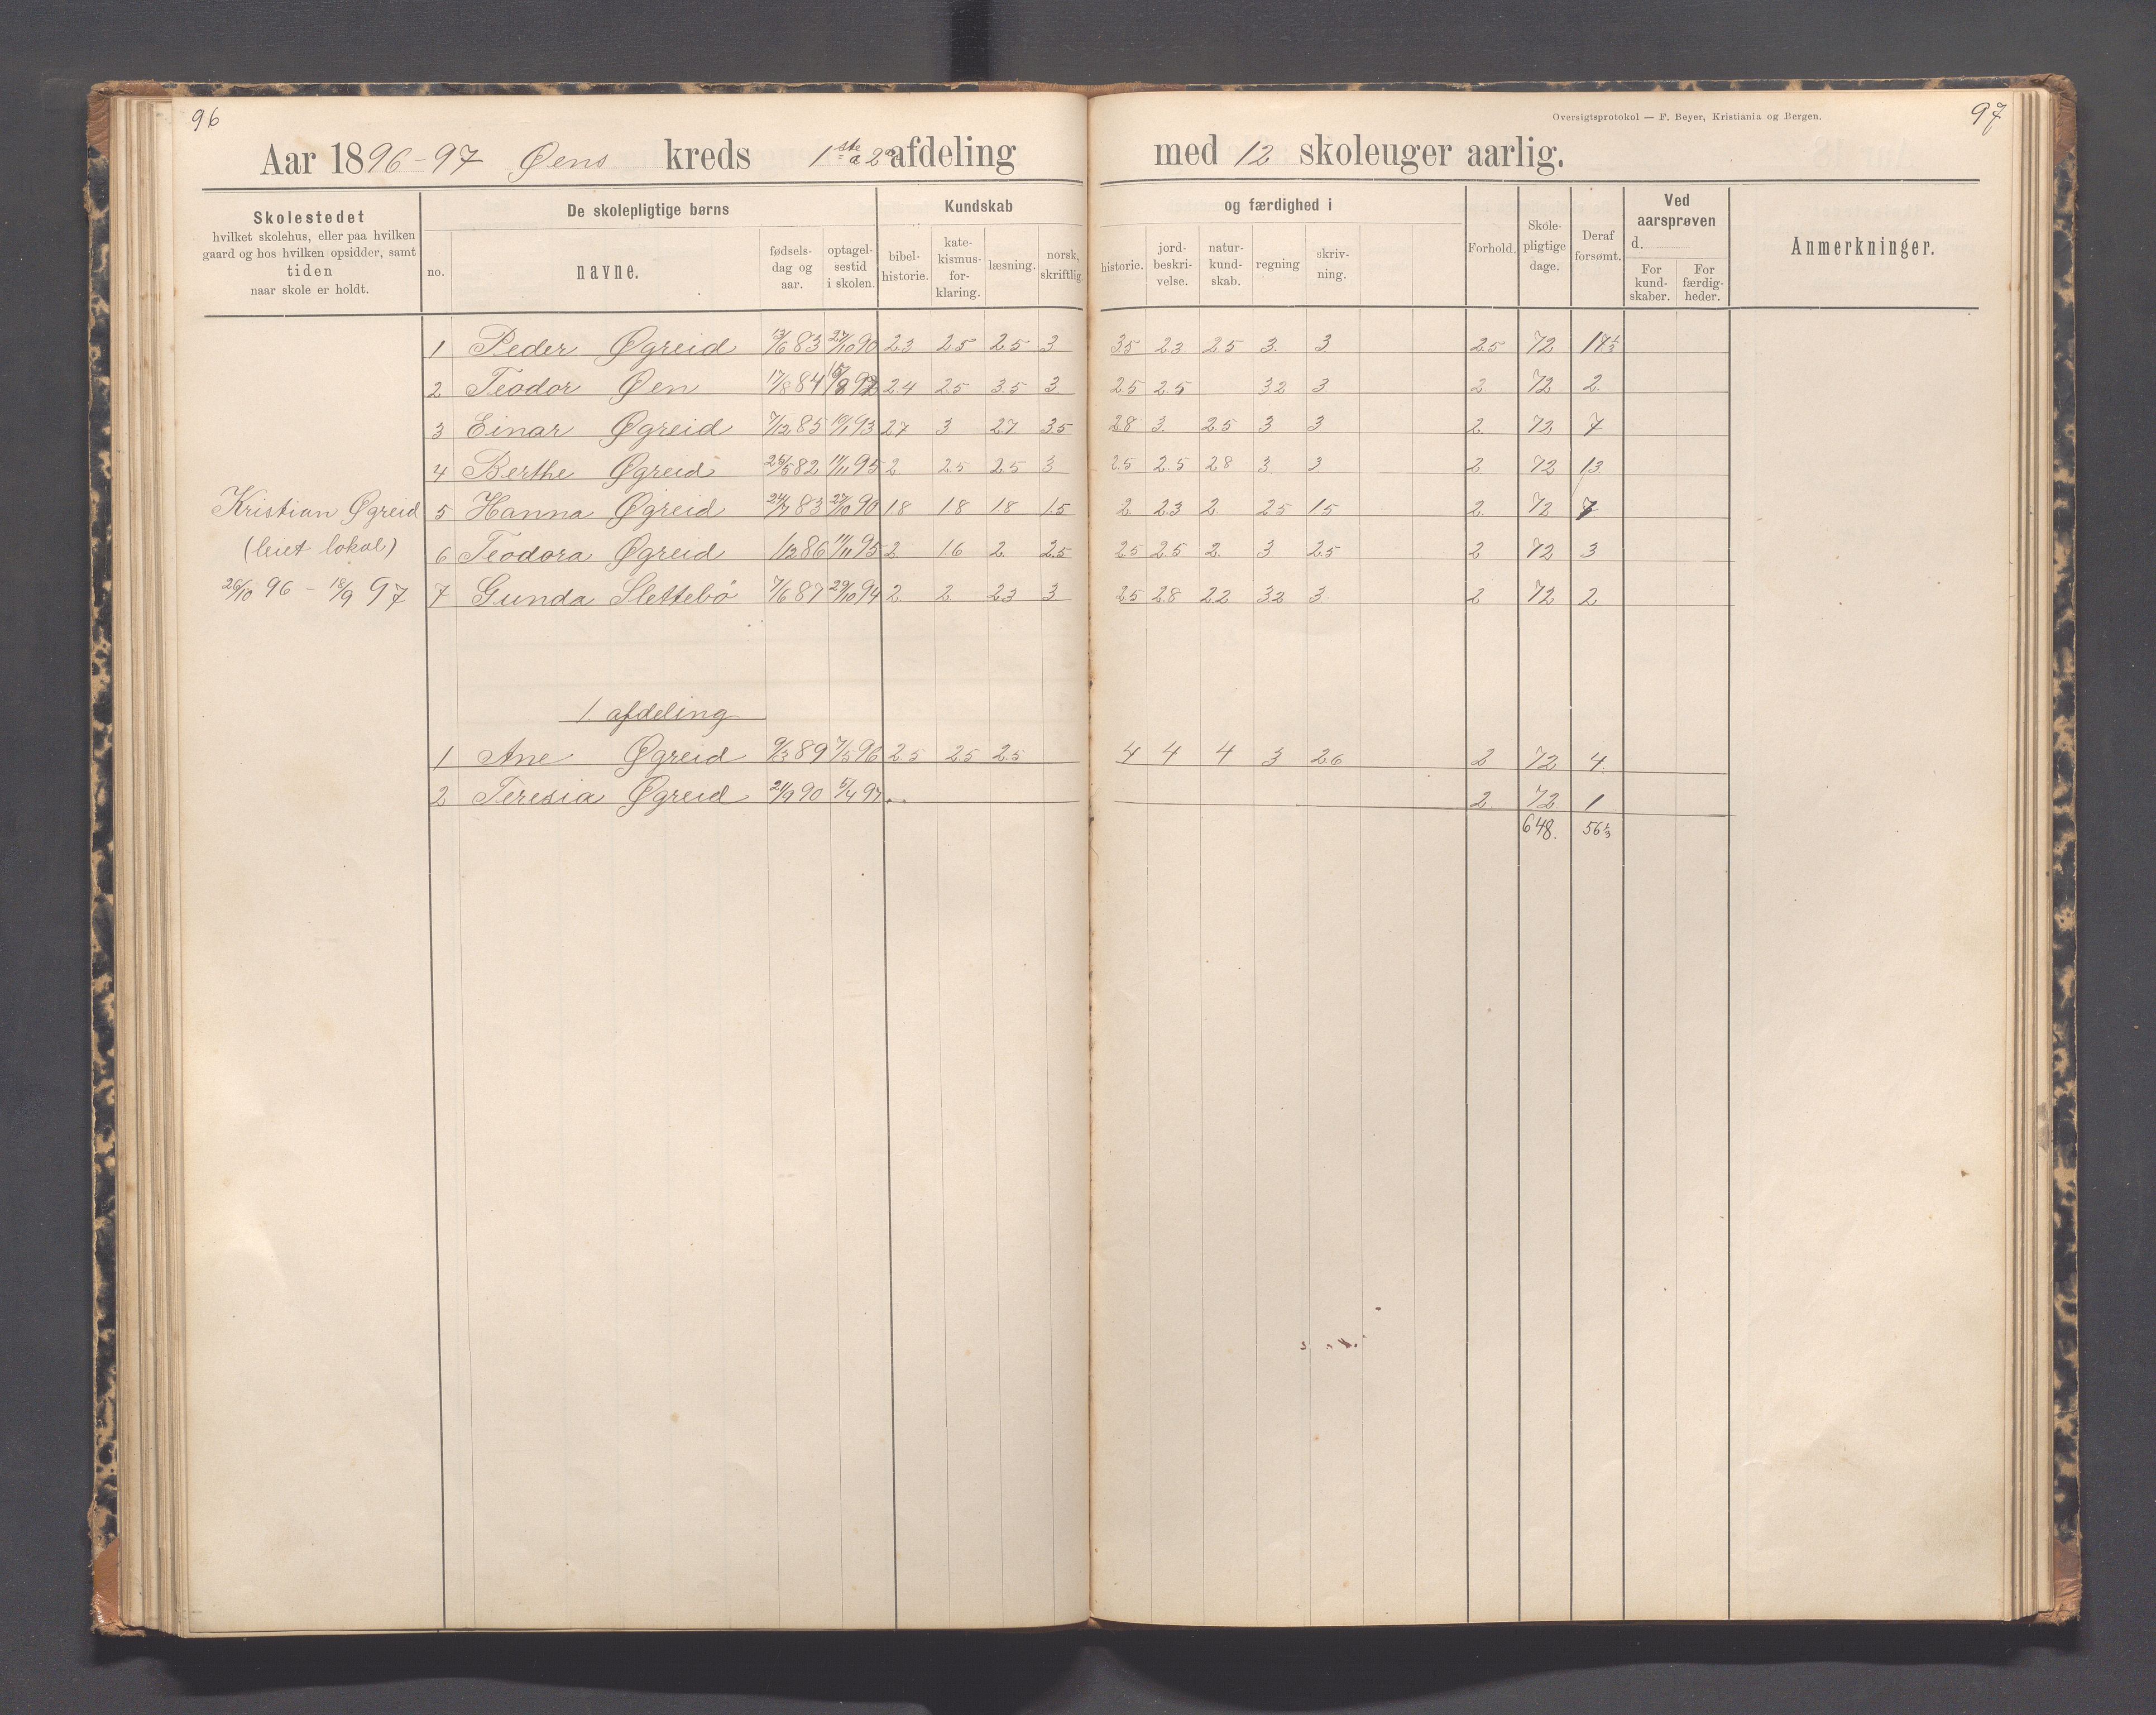 96
Aar 1896-97 Øens kreds 1ste a 2 afdeling
Skolestedet
hvilket skolehus, eller paa hvilken
gaard og hos hvilken opsidder, samt
tiden
naar skole er holdt.
De skolepligtige børns
no.
navne.
fødsels-
dag og
aar.
optagel-
sestid
i skolen.
Kundskab
bibel-
historie.
kate-
kismus-
for-
klaring.
læsning.
norsk,
skriftlig.
Kristian Øgreid
(leiet lokal)
26/10 96 - 18/9 97
1 Peder Øgreid 13/6 83 27/10 90 2.3 2.5 2.5 3
2 Teodor Øen 17/8 84 92 2.4 2.5 3.5 3
3 Einar Øgreid 7/12 85 19/1 93 2.7 3 2.7 3.5
4 Berthe Øgreid 26/5 82 11/11 95 2 2.5 2.5 3
5 Hanna Øgreid 24/7 83 27/10 90 1.8 1.8 1.8 1.5
6 Teodora Øgreid 1/12 86 11/11 95 2 1.6 2 2.5
7 Gunda Slettebö 7/6 87 29/10 94 2 2 2.3 3
1. afdeling
1 Ane Øgreid 9/3 89 7/5 96 2.5 2.5 2.5
2 Teresia Øgreid 21/9 90 5/4 97
Oversigtsprotokol — F. Beyer, Kristiania og Bergen.
97
med 12 skoleuger aarlig.
og færdighed i
historie.
jord-
beskri-
velse.
natur-
kund-
skab.
regning
skriv-
ning.
Forhold.
Skole-
pligtige
dage.
Deraf
forsømt.
Ved
aarsprøven
d.
For
kund-
skaber.
For
færdig-
heder.
Anmerkninger.
3.5 2.3 2.5 3 3 2.5 72 17 1/3
2.5 2.5 3.2 3 2 72 2
2.8 3 2.5 3 3 2 72 7
2.5 2.5 2.8 3 3 2 72 13
2 2.3 2 2.5 1.5 2 72 7
2.5 2.5 2 3 2.5 2 72 3
2.5 2.8 2.2 3.2 3 2 72 2
4 4 4 3 2.6 2 72 4
2 72 1
648. 56 1/3